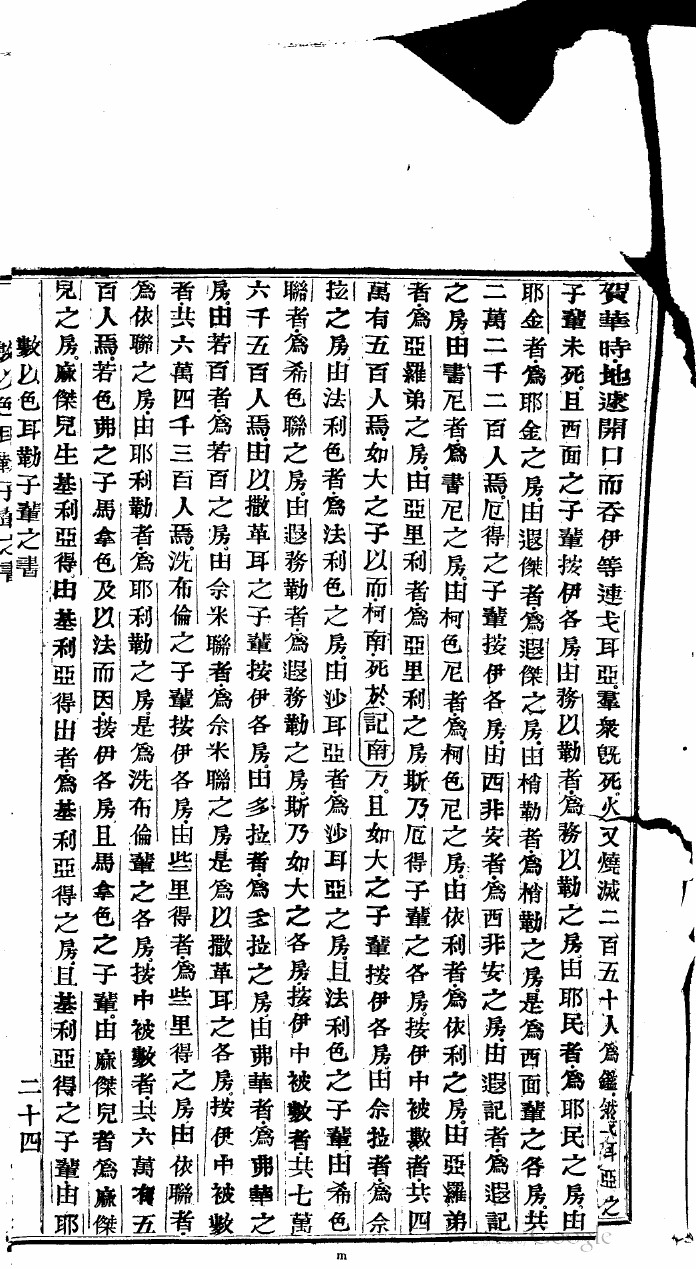 賀華時地遂開口而吞伊等連戈耳亞羣衆旣死火又燒滅二百五十人爲鑑然戈耳亞之
子輩未死且西面之子輩按伊各房由務以勒者爲務以勒之房由耶民者爲耶民之房由
耶金者爲耶金之房由遐傑者爲遐傑之房由梢勒者爲梢勒之房是爲西面輩之各房共
二萬二千二百人焉厄得之子輩按伊各房由西非安者爲西非安之房由遐記者爲遐記
之房由書尼者爲書尼之房由柯色尼者爲柯色尼之房由依利者爲依利之房由亞羅弟
者爲亞羅弟之房由亞里利者爲亞里利之房斯乃厄得子輩之各房按伊中被數者共四
萬有五百人焉如大之子以而柯南死於記南方且如大之子輩按伊各房由佘拉者爲佘
拉之房由法利色者爲法利色之房由沙耳亞者爲沙耳亞之房且法利色之子輩由希色
聯者爲希色聯之房由遐務勒者爲遐務勒之房斯乃如大之各房按伊中被數者共七萬
六千五百人焉由以撒革耳之子輩按伊各房由多拉者爲多拉之房由弗華者爲弗華之
房由若百者爲若百之房由佘米聯者爲佘米聯之房是爲以撒革耳之各房按伊中被數
者共六萬四千三百人焉洗布倫之子輩按伊各房由些里得者爲些里得之房由依聯者
爲依聯之房由耶利勒者爲耶利勒之房是爲洗布倫輩之各房按中被數者共六萬有五
百人焉若色弗之子馬拿色及以法而因按伊各房且馬拿色之子輩由麻傑兒者爲麻傑
兒之房麻傑兒生基利亞得由基利亞得出者爲基利亞得之房且基利亞得之子輩由耶
數以色耳勒子輩之書
二十四
Google
m